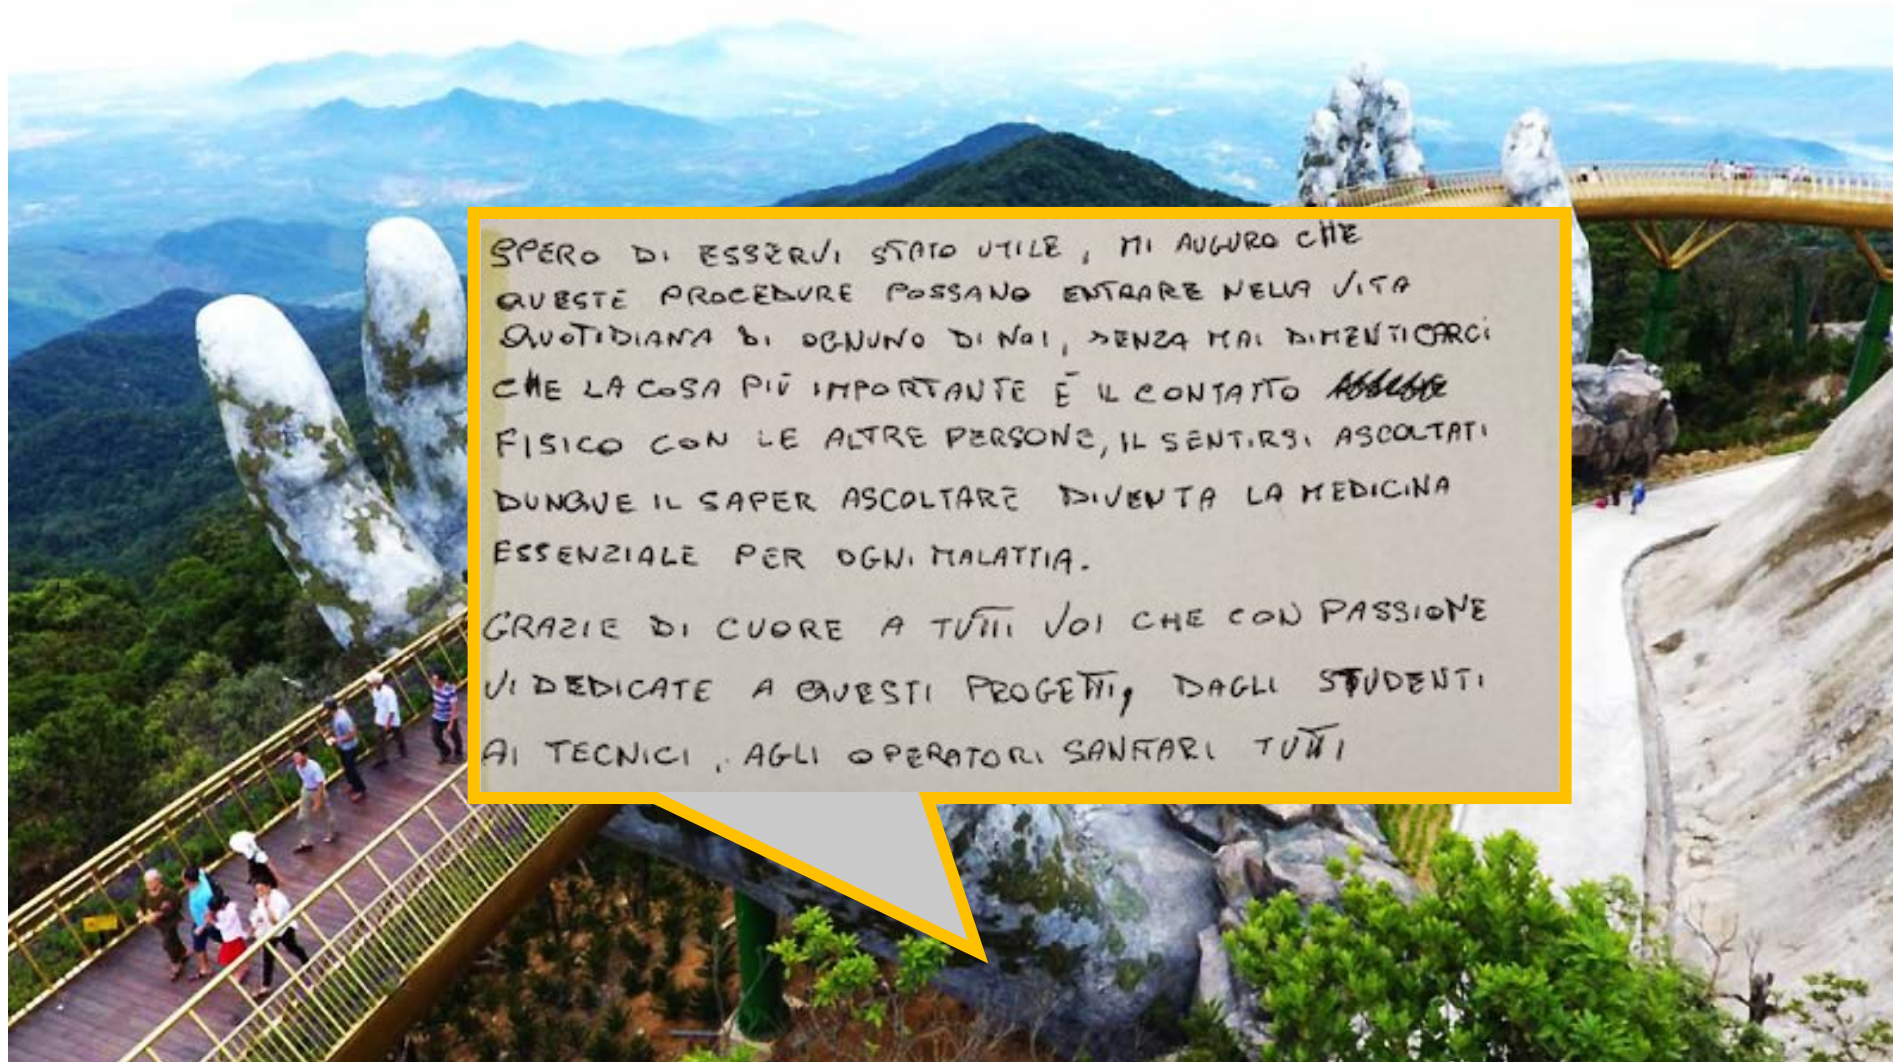 SPERO DI ESSERVI STATO UTILE, MI AUGURO CHE
QUESTE PROCEDURE POSSANO ENTRARE NELLA VITA
QUOTIDIANA DI OGNUNO DI NOI, SENZA MAI DIMENTICARCI
CHE LA COSA PIÙ IMPORTANTE È IL CONTATTO
FISICO CON LE ALTRE PERSONE, IL SENTIRSI ASCOLTATI
DUNQUE IL SAPER ASCOLTARE DIVENTA LA MEDICINA
ESSENZIALE PER OGNI MALATTIA.
GRAZIE DI CUORE A TUTTI VOI CHE CON PASSIONE
VI DEDICATE A QUESTI PROGETTI, DAGLI STUDENTI
AI TECNICI, AGLI OPERATORI SANITARI TUTTI